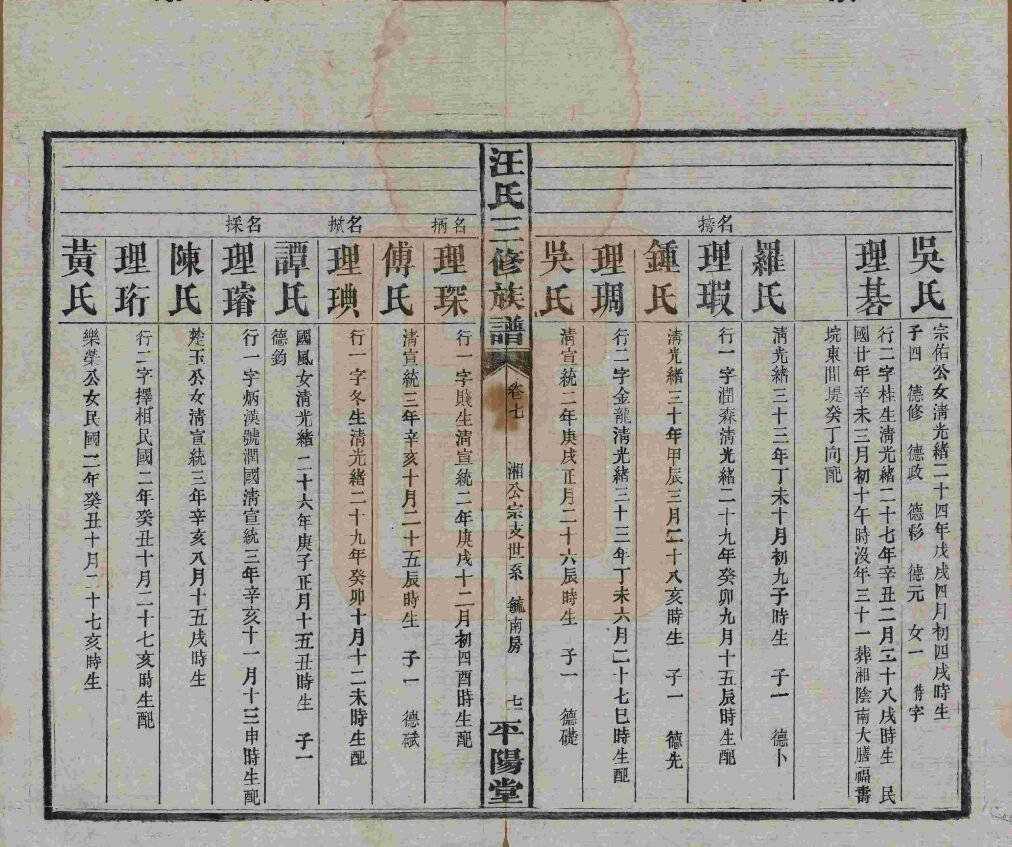 吳氏
宗佑公女淸光緒二十四年戊戌四月初四戌時生
子四 德修 德政 德彩 德元 女一 待字
理碁
行二字桂生淸光緒二十七年辛丑二月二十八戌時生 民
國廿年辛未三月初十午時沒年三十一葬湘陰南大膳福壽
垸東間堤癸丁向配
羅氏
淸光緒三十三年丁未十月初九子時生 子一 德卜
名搒
理瑕
行一字潤森淸光緒二十九年癸卯九月十五辰時生配
鍾氏
淸光緒三十年甲辰三月二十八亥時生 子一 德先
理琱
行二字金龍淸光緒三十三年丁未六月二十七巳時生配
吳氏
淸宣統二年庚戌正月二十六辰時生 子一 德礎
汪氏三修族譜
卷七
湘公宗支世系 毓南房
七二
平陽堂
名抦
理琛
行一字賤生淸宣統二年庚戌十二月初四酉時生配
傅氏
淸宣統三年辛亥十月二十五辰時生 子一 德斌
名掀
理琠
行一字冬生淸光緒二十九年癸卯十月十二未時生配
譚氏
國風女淸光緒二十六年庚子正月十五丑時生 子一
德鈞
名採
理璿
行一字炳漢號潤國淸宣統三年辛亥十一月十三申時生配
陳氏
楚玉公女淸宣統三年辛亥八月十五戌時生
理珩
行二字擇相民國二年癸丑十月二十七亥時生配
黃氏
樂榮公女民國二年癸丑十月二十七亥時生